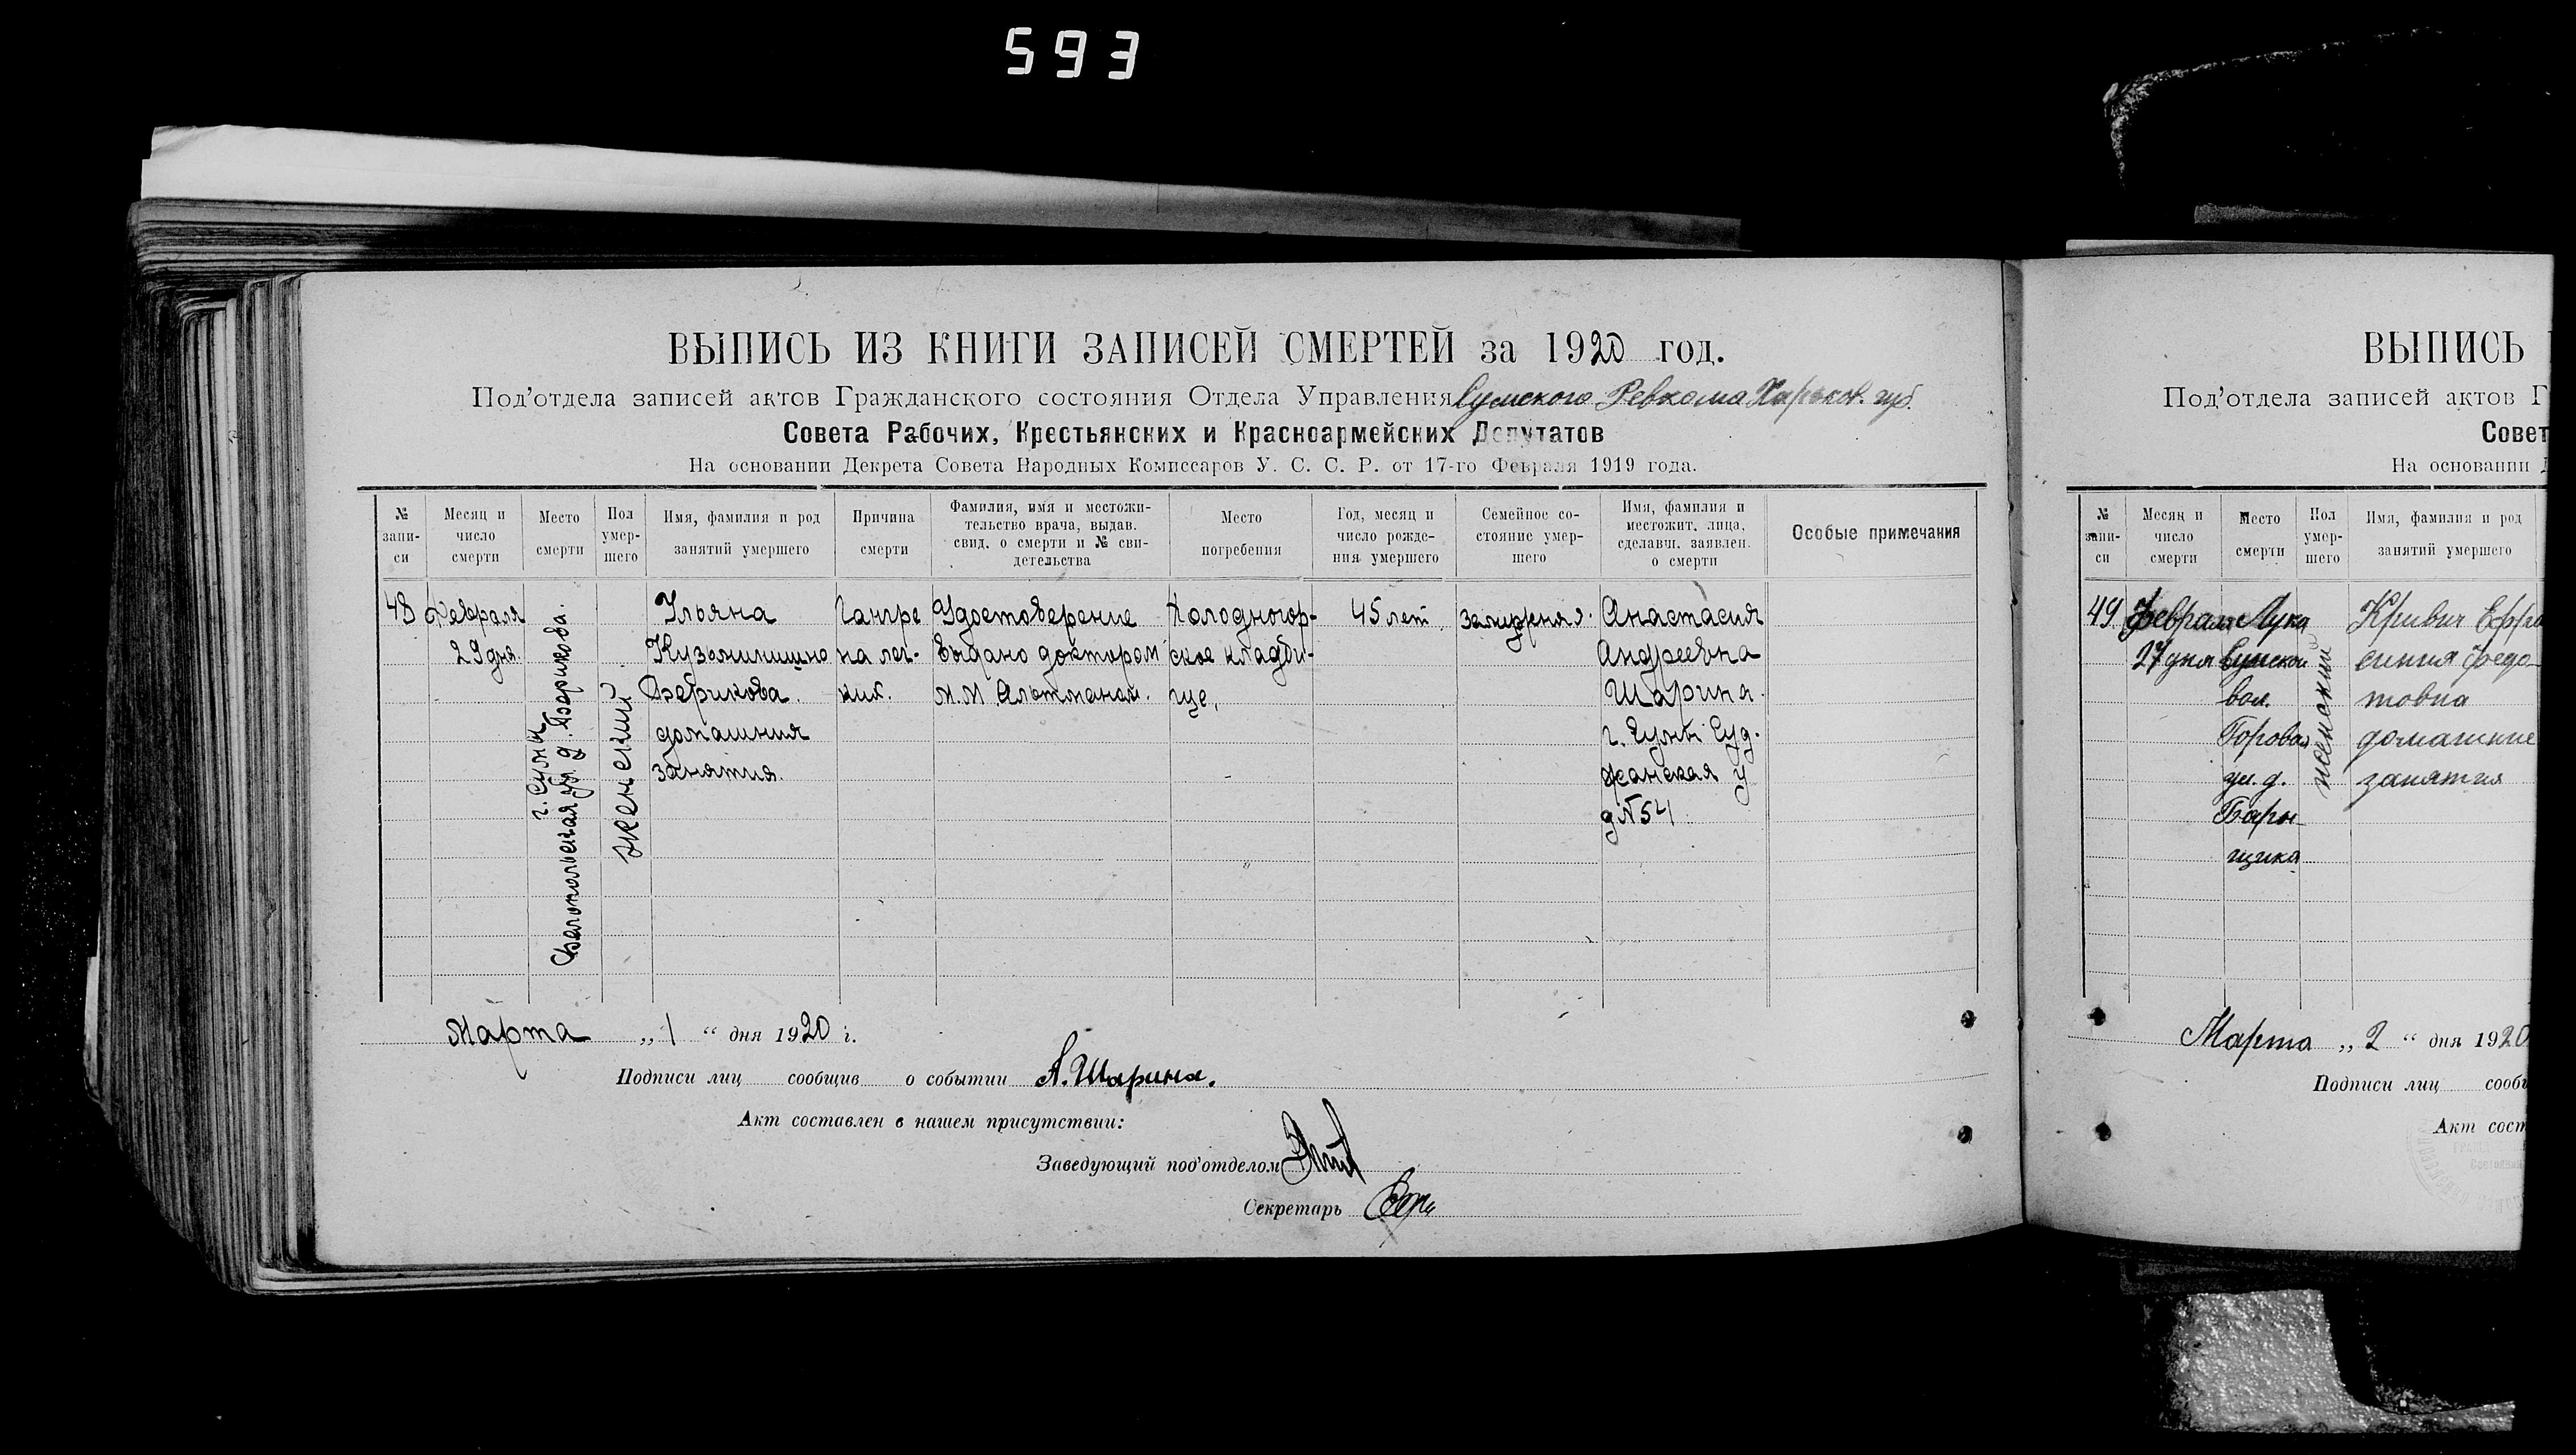 593
ВЫПИСЬ ИЗ КНИГИ ЗАПИСЕЙ СМЕРТЕЙ за 1920 год.
Под'отдела записей актов Гражданского состояния Отдела Управления Сумского Ревкома Харьков. губ.
Совета Рабочих, Крестьянских и Красноармейских Депутатов
На основании Декрета Совета Народных Комиссаров У. С. С. Р. от 17-го Февраля 1919 года.
№ запи-
си
Месяц и
число
смерти
Место
смерти
Пол
умер-
шего
Имя, фамилия и род
занятий умершего
Причина
смерти
Фамилия, имя и местожи-
тельство врача, выдав.
свид. о смерти и № сви-
детельства
Место
погребения
Год, месяц и
число рожде-
ния умершего
Семейное со-
стояние умер-
шего
Имя, фамилия и
местожит. лица,
сделавш. заявлен.
о смерти
Особые примечания
48
Февраля
29 дня.
г. Сумы
Белопольская ул. д. Берикова.
женский
Ульяна
Кузьминишна
Берикова.
домашния
занятия.
Гангре
на лег-
ких.
Удостоверение
выдано доктором
М.М. Альтманом.
Холодногор-
ское кладби-
ще.
45 лет
замужняя.
Анастасия
Андреевна
Шарина.
г. Сумы Суд-
жанская у
д № 54
Марта „ 1 “ дня 1920 г.
Подписи лиц сообщив о событии А. Шарина.
Акт составлен в нашем присутствии:
Заведующий под'отделом
Секретарь
ВЫПИСЬ
Под'отдела записей актов Г
Совет
На основании
№
запи-
си
Месяц и
число
смерти
Место
смерти
Пол
умер-
шего
Имя, фамилия и род
занятий умершего
49
Февраля
27 дня
Лука
Сумской
вол.
Горовая
ул. д.
Бары-
щика
женский
Кривич Ефро
синия Федо-
товна
домашние
занятия
Марта „ 2 “ дня 1920
Подписи лиц сообщ
Акт сост